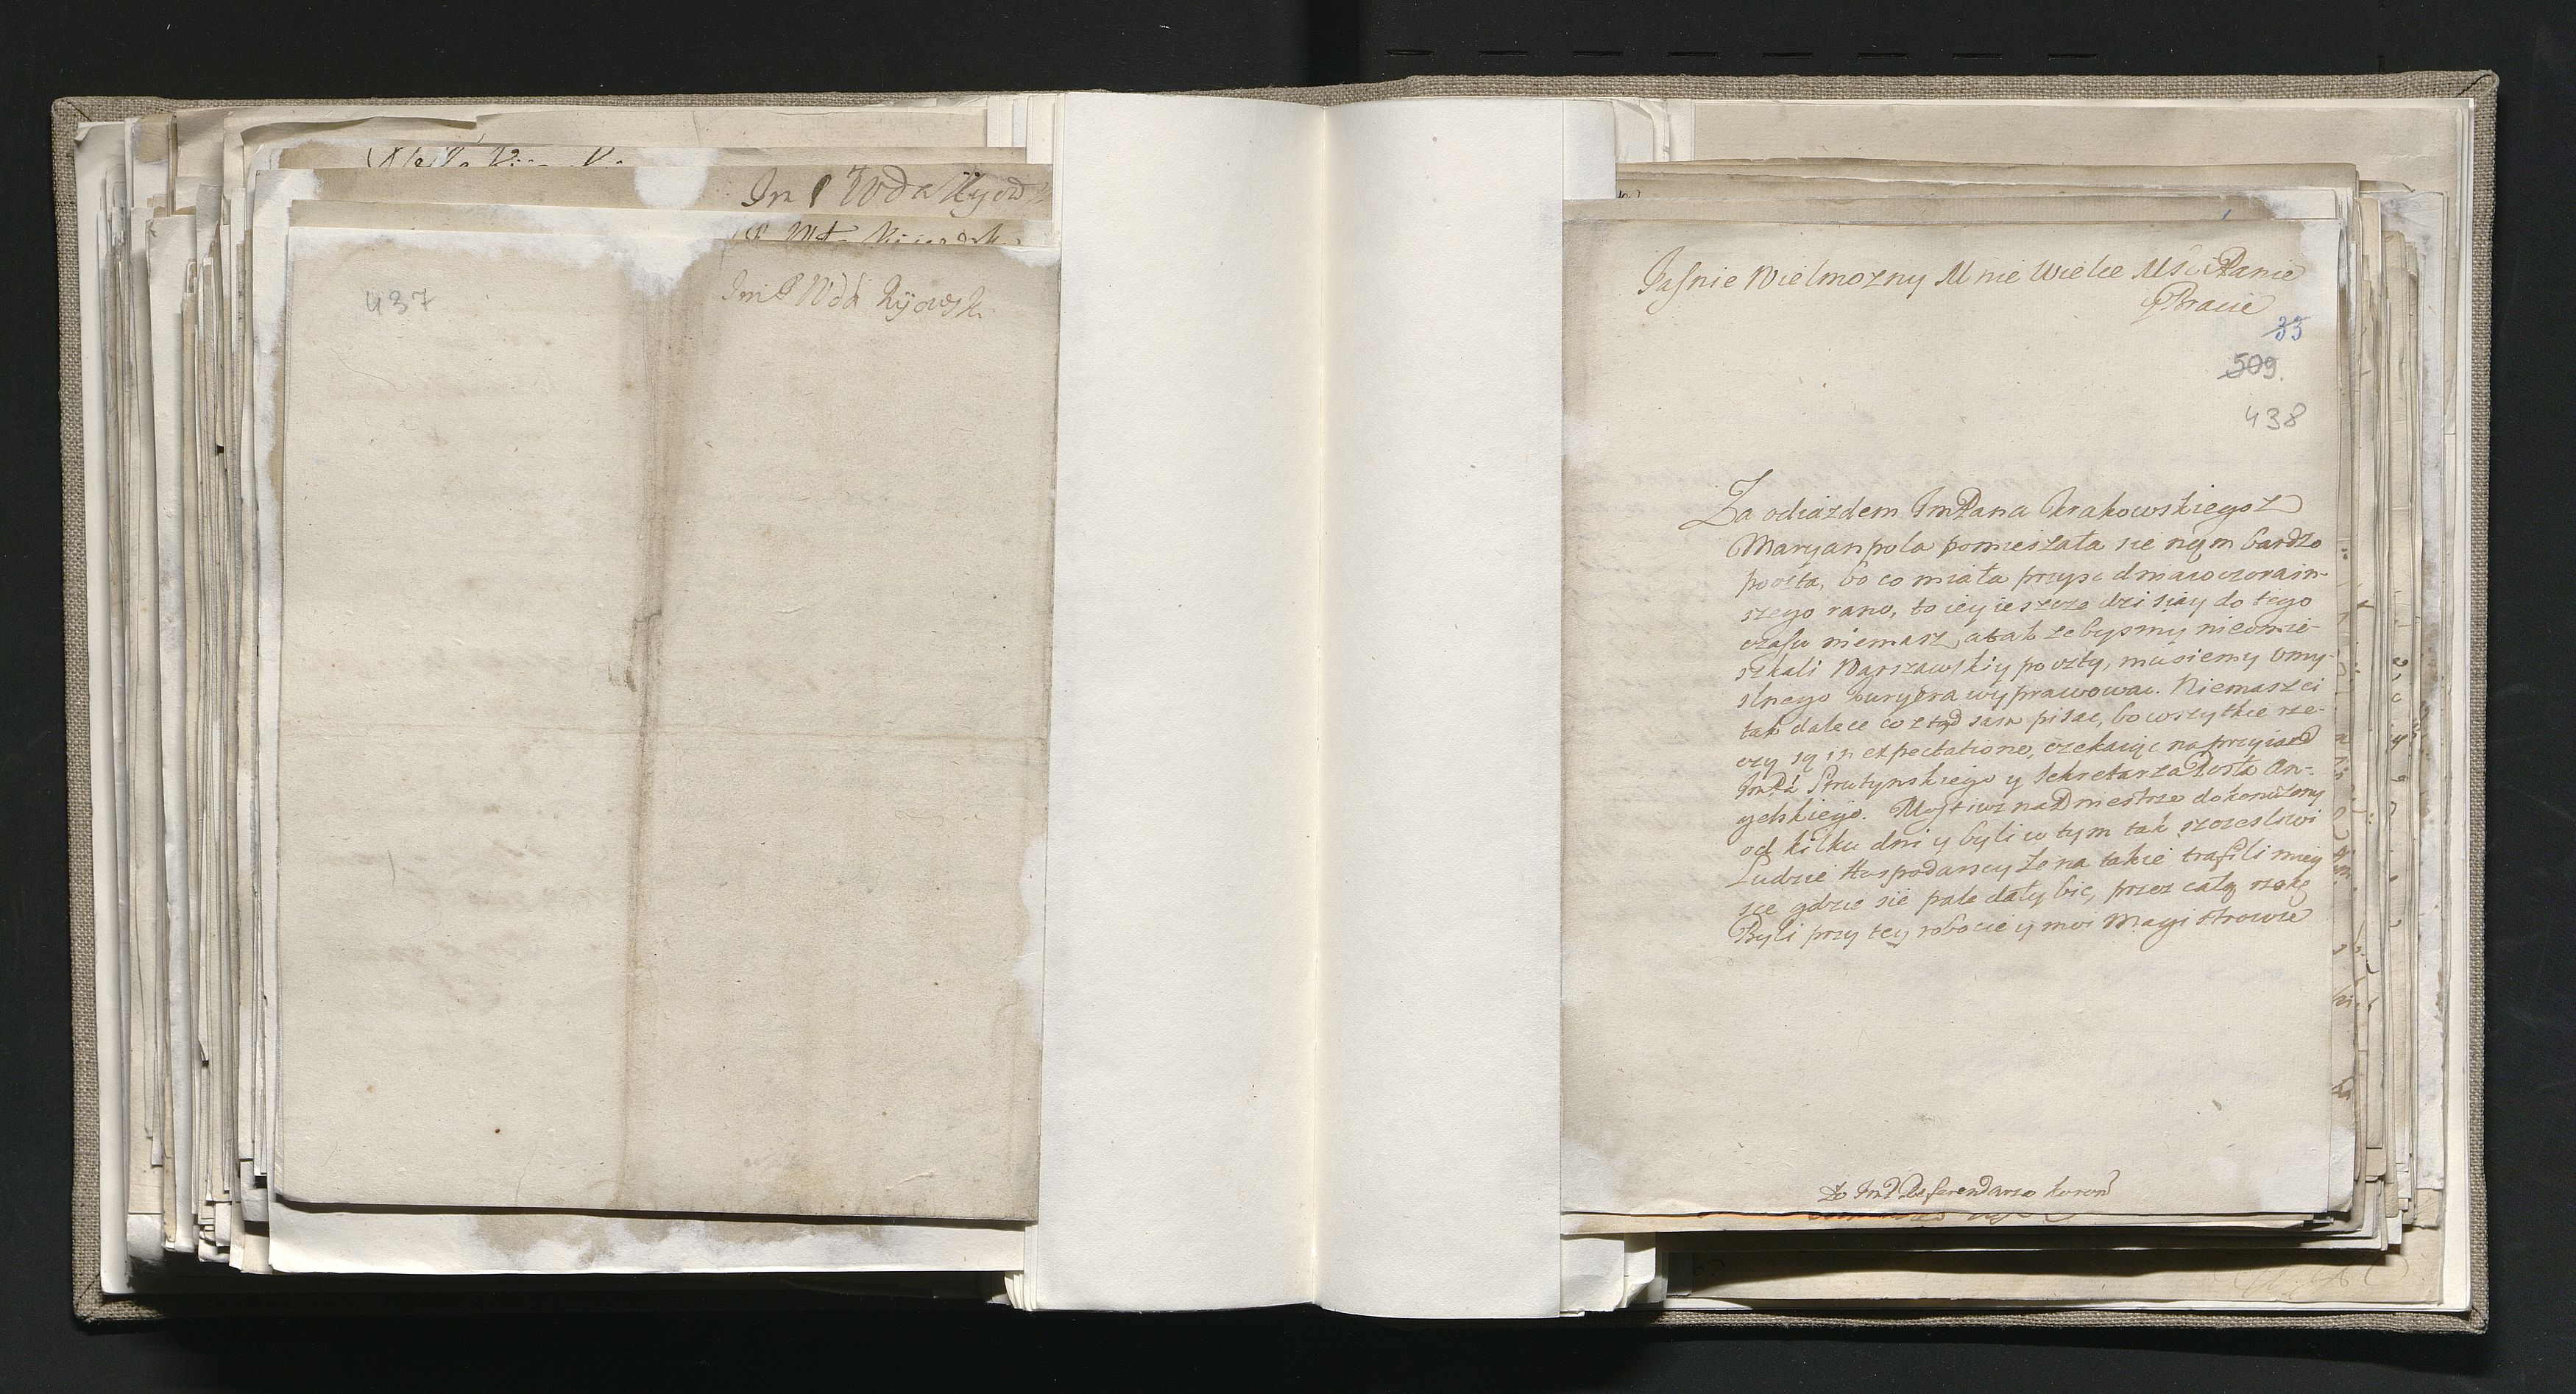 437
Im P Wda Kyow
Im P Wda Kijowsk
Jasnie Wielmozny Mnie Wielce Msci Panie
y Bracie
33
509.
438
Za odiazdem ImPana Krakowskiego z
Maryanpola pomieszała sie nąm bardzo
poczta, bo co miała przysc dnia wczorain-
szego rano, to iey ieszcze dzisiay do tego
czasu niemasz, a tak zebysmy nieomie-
szkali Warszawskiy poczty, musiemy vmy-
slnego kuryera wyprawowac. Niemasz ci
tak dalece co ztąd sam pisac, bo wszytkie rze-
czy są in expectatione, czekaiąc na przyiazd
ImPa Strutynskiego y Sekretarza Posła An-
gelskiego. Most iuz na Dniestrze dokonczony
od kilku dni y byli w tym tak szczesliwi
Ludzie Hospodarscy ze na takie trafili miey
sce gdzie sie pale dały bic, przez całą rzekę
Byli przy tey robocie y moi Magistrowie
Do ImP Referendarza koron